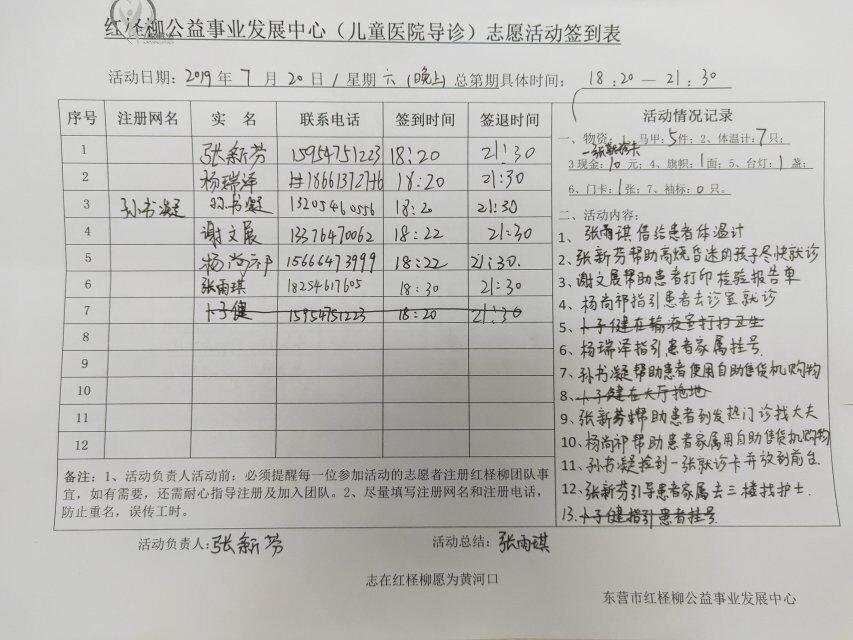 红柽柳公益事业发展中心（儿童医院导诊）志愿活动签到表
活动日期：2019年7月20日/星期六(晚上)总第期具体时间：18:20—21:30
序号 注册网名 实 名 联系电话 签到时间 签退时间
1 张新芬 15954751223 18:20 21:30
2 杨瑞泽 18661372716 18:20 21:30
3 孙书凝 孙书凝 13205460556 18:20 21:30
4 谢文展 13376470062 18:22 21:30
5 杨尚祁 15666473999 18:22 21:30.
6 张雨琪 18254617605 18:30 21:30
7 卜子健 15954751223 18:20 21:30
8
9
10
11
12
活动情况记录
一、物资：1、马甲：5件；2、体温计：7只；
一张就诊卡
3现金：10元；4、旗帜：1面；5、台灯：1盏；
6、门卡：1张；7、袖标：0只。
二、活动内容：
1、张雨琪借给患者体温计
2、张新芬帮助高烧昏迷的孩子尽快就诊
3、谢文展帮助患者打印检验报告单
4、杨尚祁指引患者去诊室就诊
5、卜子健在输液室打扫卫生
6、杨瑞泽指引患者家属挂号
7、孙书凝帮助患者使用自助售货机购物
8、卜子健在大厅拖地
9、张新芬帮助患者到发热门诊找大夫
10、杨尚祁帮助患者家属用自助售货机购物
11、孙书凝捡到一张就诊卡并放到前台
12、张新芬引导患者家属去三楼找护士
13.卜子健指引患者挂号
备注：1、活动负责人活动前：必须提醒每一位参加活动的志愿者注册红柽柳团队事
宜，如有需要，还需耐心指导注册及加入团队。2、尽量填写注册网名和注册电话，
防止重名，误传工时。
活动负责人：张新芬 活动总结：张雨琪
志在红柽柳愿为黄河口
东营市红柽柳公益事业发展中心